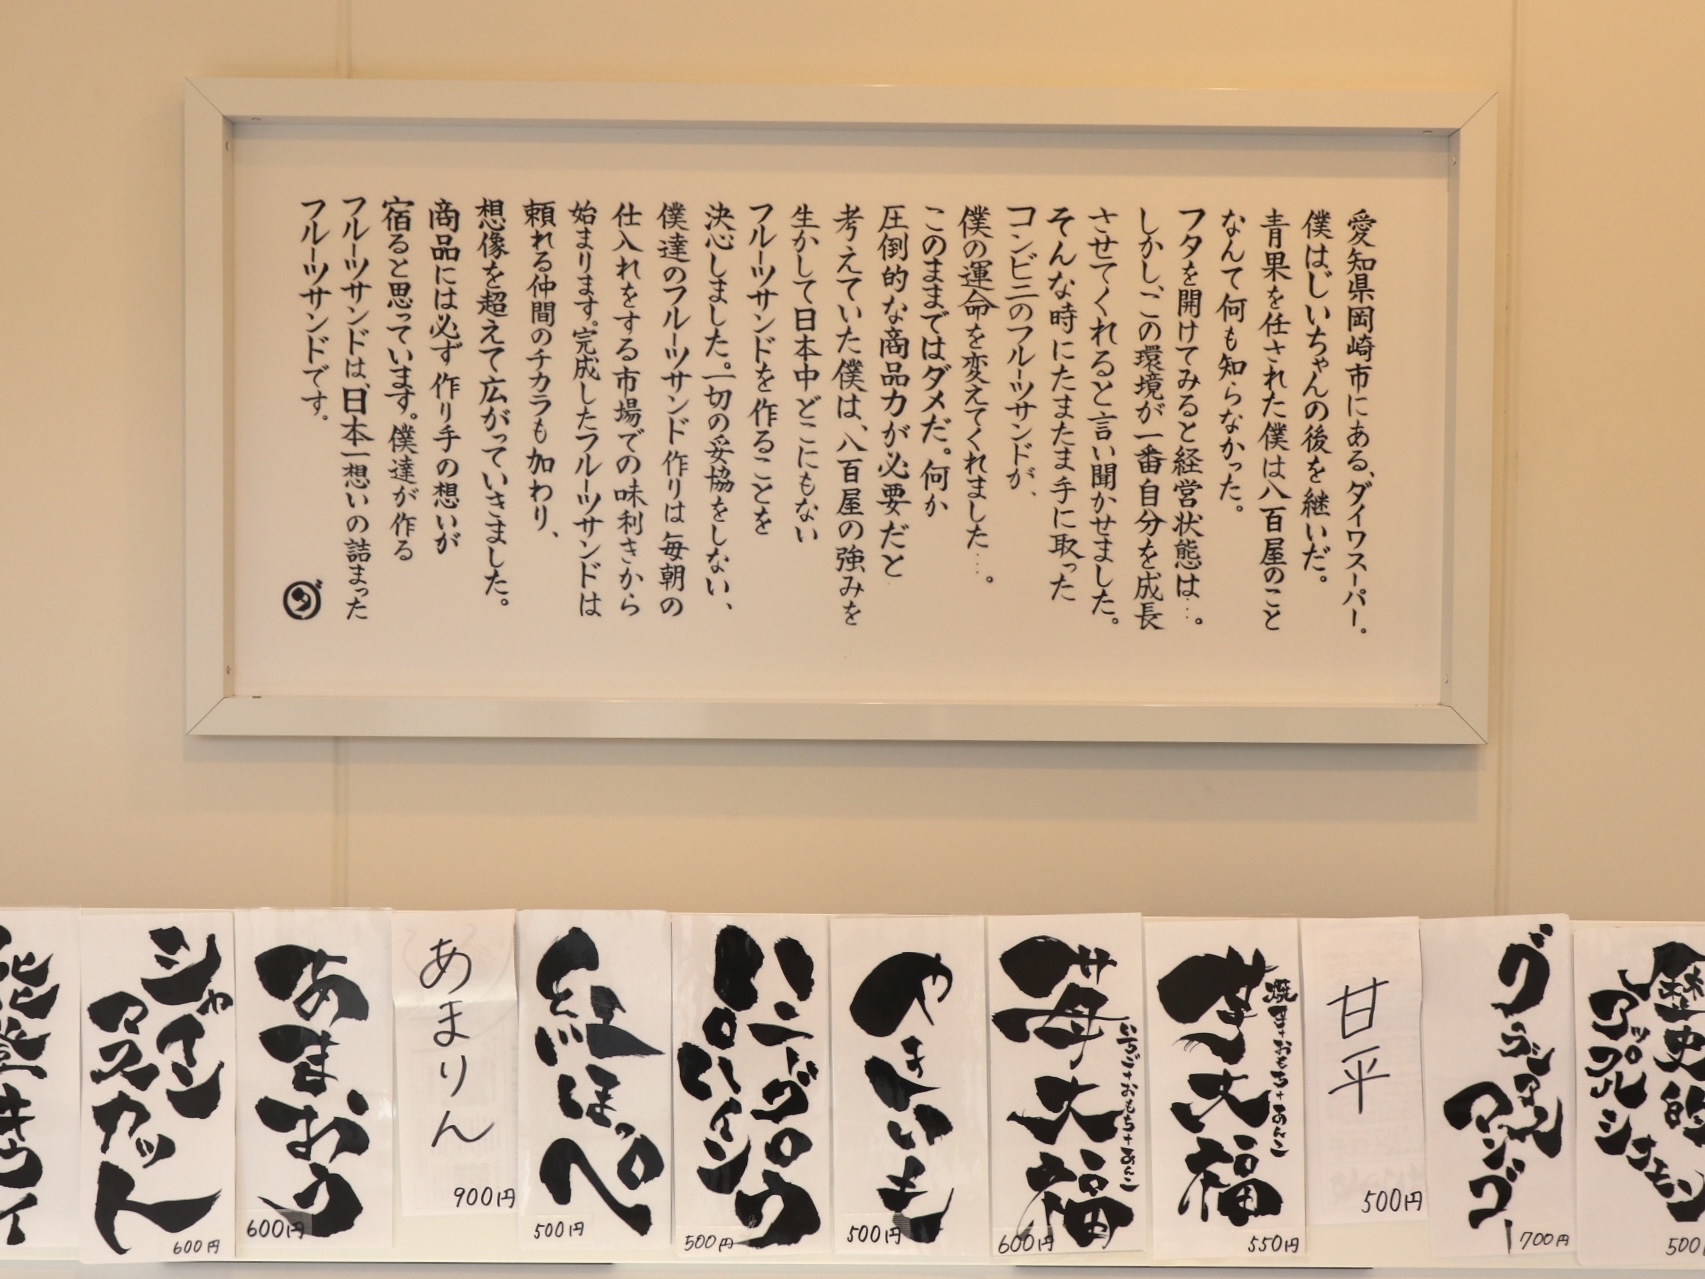 愛知県岡崎市にある、ダイワスーパー。
僕はじいちゃんの後を継いだ。
青果を任された僕は八百屋のこと
なんて何も知らなかった。
フタを開けてみると経営状態は…。
しかし、この環境が一番自分を成長
させてくれると言い聞かせました。
そんな時にたまたま手に取った
コンビニのフルーツサンドが、
僕の運命を変えてくれました…。
このままではダメだ。何か
圧倒的な商品力が必要だと
考えていた僕は、八百屋の強みを
生かして日本中どこにもない
フルーツサンドを作ることを
決心しました。一切の妥協をしない、
僕達のフルーツサンド作りは毎朝の
仕入れをする市場での味利きから
始まります。完成したフルーツサンドは
頼れる仲間のチカラも加わり、
想像を超えて広がっていきました。
商品には必ず作り手の想いが
宿ると思っています。僕達が作る
フルーツサンドは、日本一想いの詰まった
フルーツサンドです。
ダ
歴史的
アップルシナモン
500
グラシャス
マンゴー
700円
甘平
500円
芋大福
焼き芋+おもち+あんこ
550円
苺大福
いちご+おもち+あんこ
600円
やきいも
500円
ハニーグロウ
パイン
500円
紅ほっぺ
500円
あまりん
900円
あまおう
600円
シャイン
マスカット
600円
能登キウイ